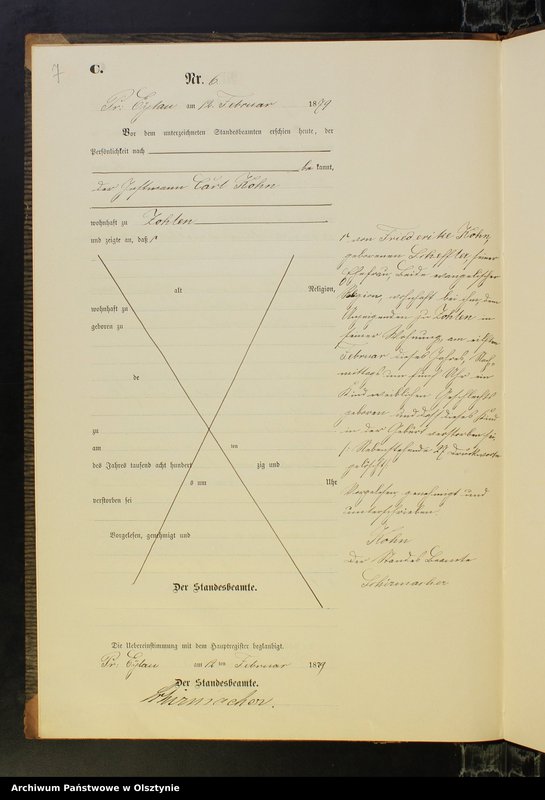 7
C.
Nr. 6
Pr. Eylau am 12. Februar 1879
Vor dem unterzeichneten Standesbeamten erschien heute, der
Persönlichkeit nach
be kannt,
der Instmann Carl Köhn
wohnhaft zu Zohlen
und zeigte an, daß
alt Religion,
wohnhaft zu
geboren zu
de
zu
am ten
des Jahres tausend acht hundert zig und
s um Uhr
verstorben sei
Vorgelesen, genehmigt und
Der Standesbeamte.
von Friederike Köhn,
geborenen Scheffler, seiner
Ehefrau, beide evangelischer
Religion, wohnhaft bei ihm, dem
Anzeigenden zu Zohlen in
seiner Wohnung, am elften
Februar dieses Jahres, Nach-
mittags um fünf Uhr ein
Kind weiblichen Geschlechts
geboren und daß dieses Kind
in der Geburt verstorben sei,
Nebenstehende 27 Druckworte
gelöscht.
Vorgelesen, genehmigt und
unterschrieben
Köhn
Der Standes Beamte
Schirmacher
Die Uebereinstimmung mit dem Hauptregister beglaubigt.
Pr. Eylau am 12 ten Februar 1879
Der Standesbeamte.
Schirmacher.
Archiwum Państwowe w Olsztynie